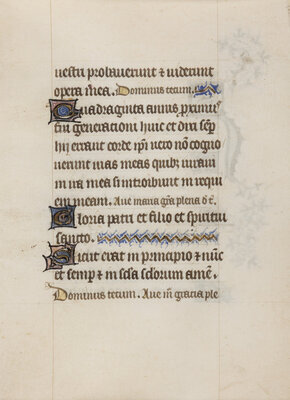 uestri probauerunt & uiderunt
opera mea. Dominus tecum.
Quadraginta annis proximus
fui generationi huic et dixi semp
hii errant corde ipsi uero non cogno
uerunt uias meas quibus iuraui
in ira mea si introibunt in requi
em meam. Aue maria gra plena d. t.
Gloria patri et filio et spiritui
sancto.
Sicut erat in principio & nunc
et semp & in scla sclorum ame.
Dominus tecum. Aue m gracia ple